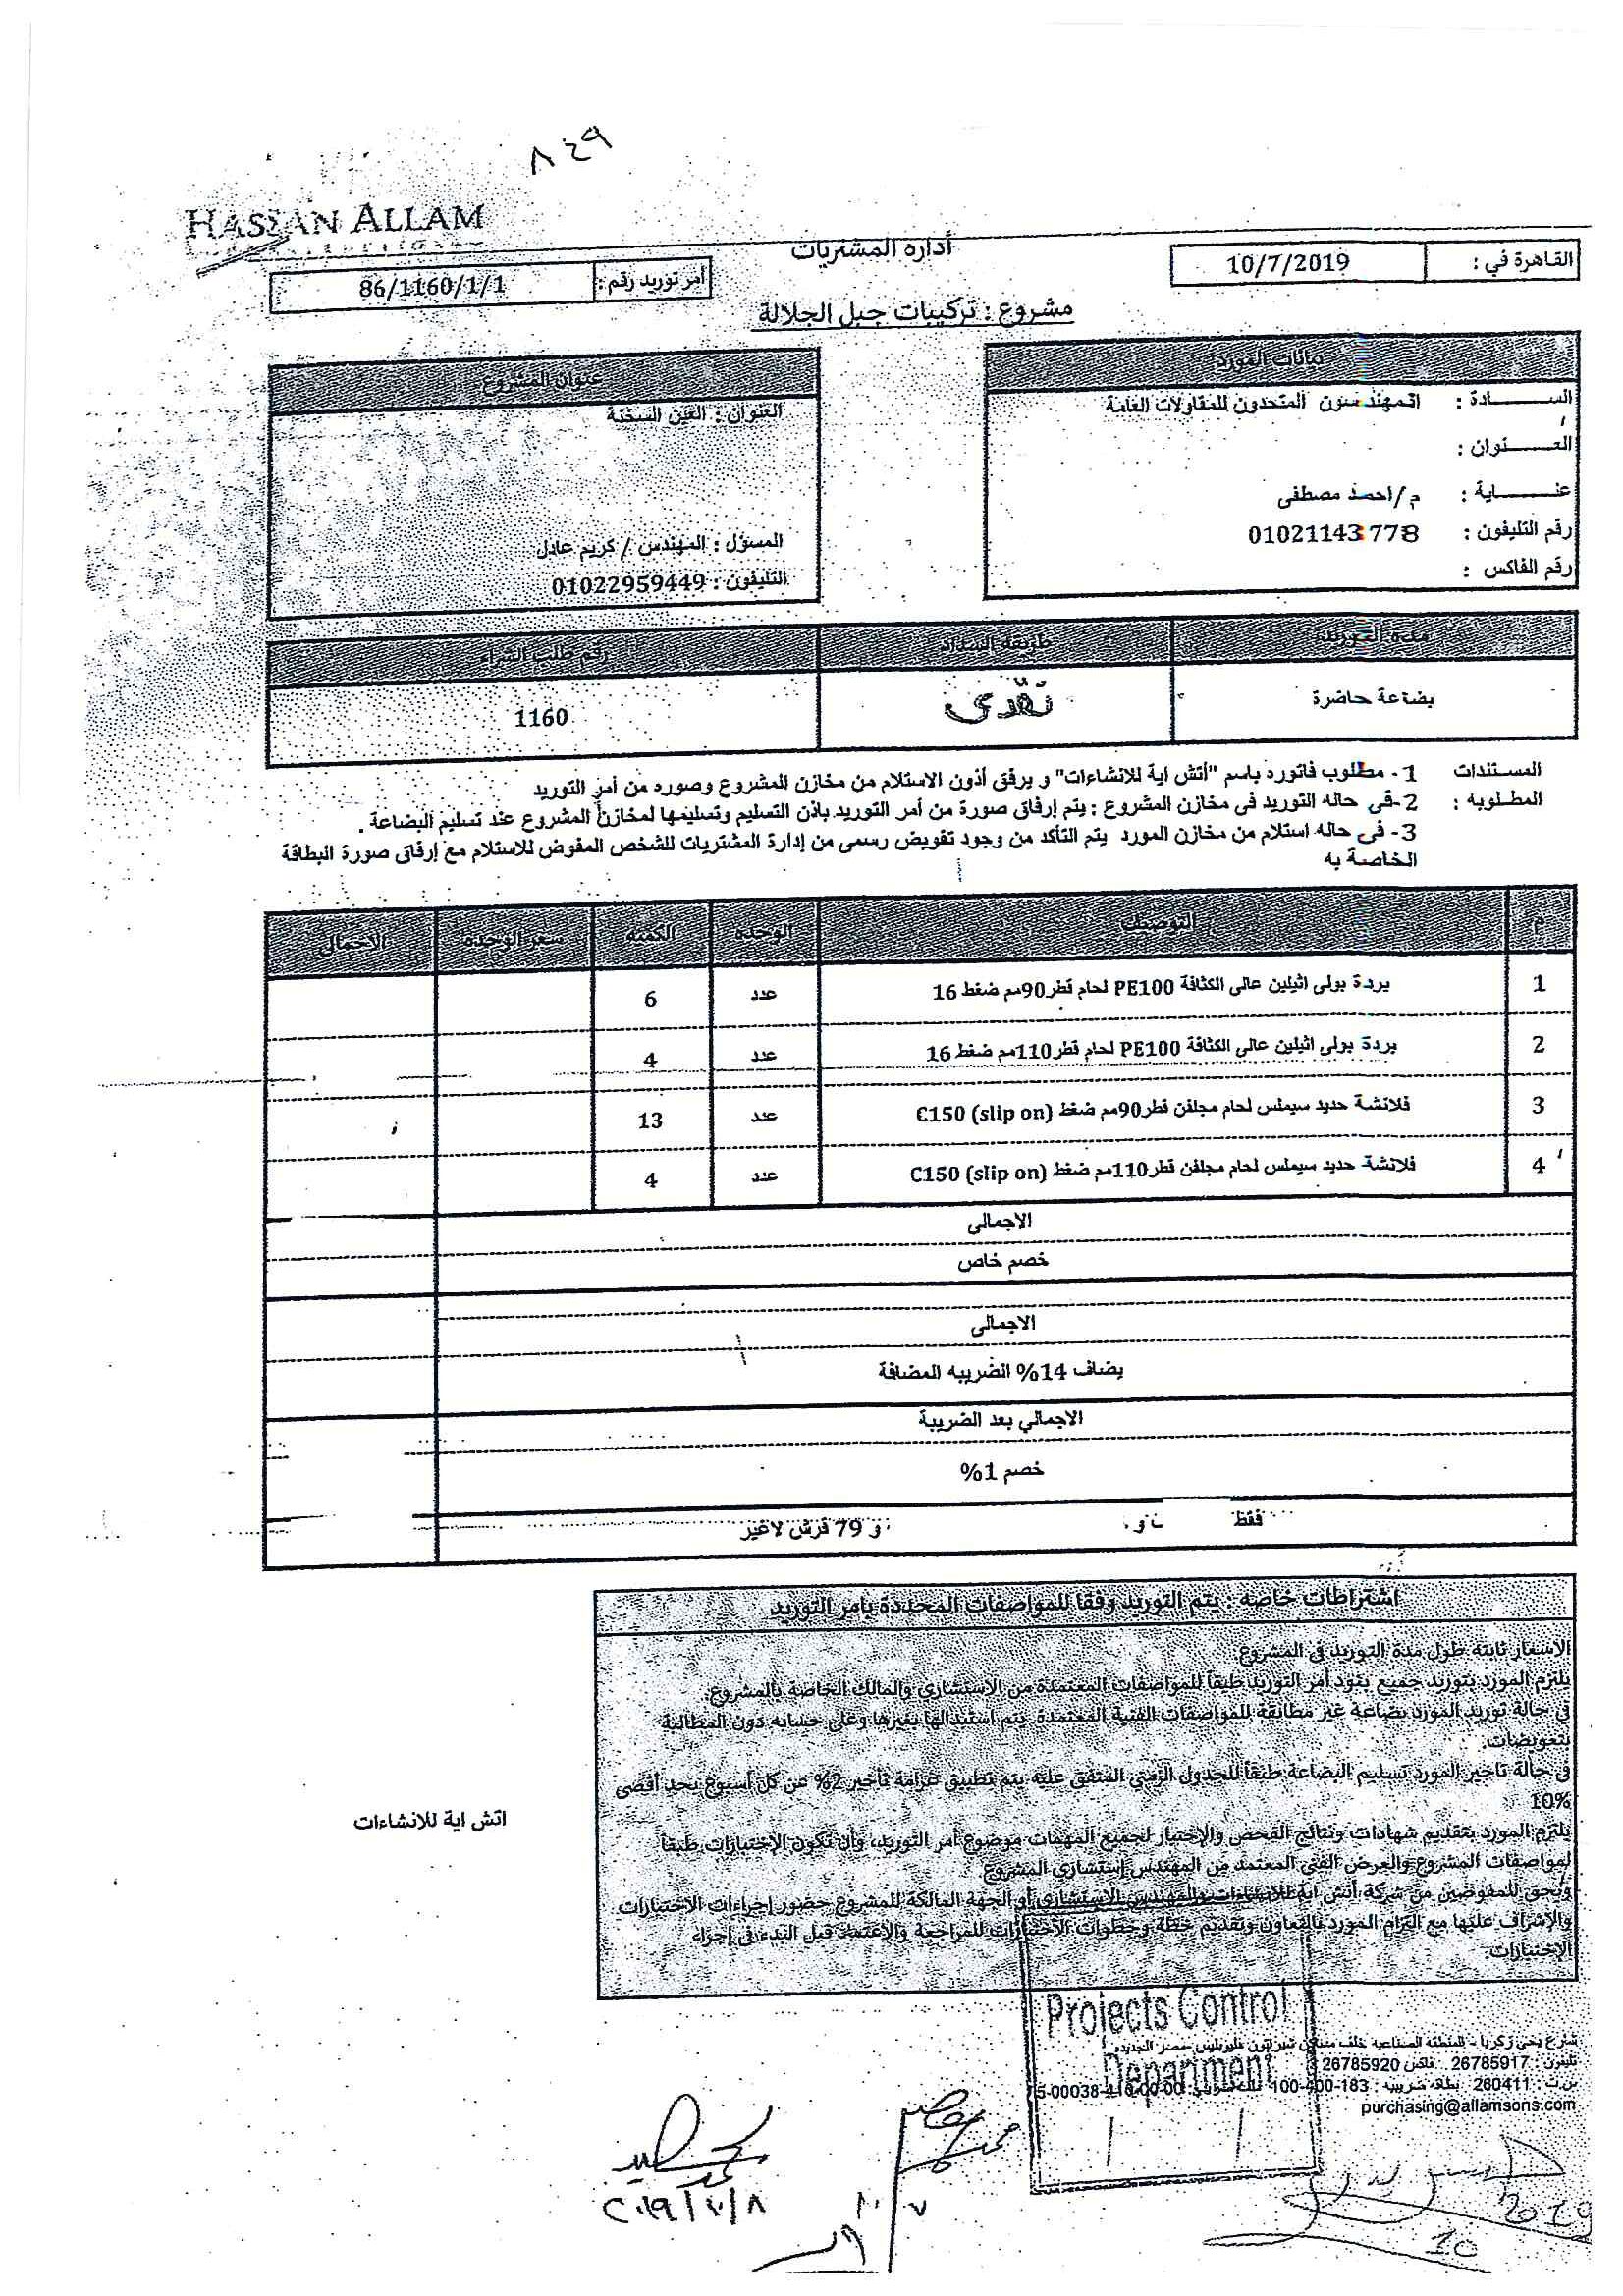 ٨٤٩
HASSAN ALLAM
أداره المشتريات
القاهرة في : 10/7/2019
أمر توريد رقم : 86/1160/1/1
مشروع : تركيبات جبل الجلالة
بيانات المورد
الســـــــادة : المهندسون المتحدون للمقاولات العامة
العـــــــنوان :
عنـــــــاية : م/احمد مصطفى
رقم التليفون : 01021143778
رقم الفاكس :
عنوان المشروع
العنوان : العين السخنة
المسؤل : المهندس / كريم عادل
التليفون : 01022959449
مدة التوريد طريقة السداد رقم طلب الشراء
بضاعة حاضرة نقدي 1160
المستندات المطلوبه :
1- مطلوب فاتورد باسم "أتش اية للانشاءات" و يرفق أذون الاستلام من مخازن المشروع وصوره من أمر التوريد
2-في حاله التوريد فى مخازن المشروع : يتم إرفاق صورة من أمر التوريد باذن التسليم وتسليمها لمخازن المشروع عند تسليم البضاعة .
3- فى حاله استلام من مخازن المورد يتم التأكد من وجود تفويض رسمى من إدارة المشتريات للشخص المفوض للاستلام مع إرفاق صورة البطاقة
الخاصة به
م التوصيف الوحدة الكمية سعر الوحدة الاجمالى
1 بردة بولى اثيلين عالى الكثافة PE100 لحام قطر90مم ضغط 16 عدد 6
2 بردة بولى اثيلين عالى الكثافة PE100 لحام قطر110مم ضغط 16 عدد 4
3 فلانشة حديد سيملس لحام مجلفن قطر90مم ضغط C150 (slip on) عدد 13
4 فلانشة حديد سيملس لحام مجلفن قطر110مم ضغط C150 (slip on) عدد 4
الاجمالى
خصم خاص
الاجمالى
يضاف 14% الضريبه المضافة
الاجمالي بعد الضريبة
خصم 1%
فقط و 79 قرش لاغير
اشتراطات خاصة : يتم التوريد وفقا للمواصفات المحددة بامر التوريد
الاسعار ثابته طول مدة التوريد فى المشروع
يلتزم المورد بتوريد جميع بنود أمر التوريد طبقا للمواصفات المعتمدة من الاستشارى والمالك الخاصة بالمشروع.
فى حالة توريد المورد بضاعة غير مطابقة للمواصفات الفنية المعتمدة يتم استبدالها بغيرها وعلى حسابه دون المطالبة
بتعويضات.
فى حالة تاخير المورد تسليم البضاعة طبقاً للجدول الزمنى المتفق عليه يتم تطبيق غرامة تأخير 2% عن كل أسبوع بحد أقصى
10%
يلتزم المورد بتقديم شهادات ونتائج الفحص والإختبار لجميع المهمات موضوع أمر التوريد، وأن تكون الإختبارات طبقاً
لمواصفات المشروع والعرض الفنى المعتمد من المهندس إستشارى المشروع
ويحق للمفوضين من شركة أتش اية للانشاءات والمهندس الاستشارى أو الجهة المالكة للمشروع حضور إجراءات الاختبارات
والإشراف عليها مع إلتزام المورد بالتعاون وتقديم خطة وخطوات الاختبارات للمراجعة والاعتماد قبل البدء فى إجراء
الإختبارات.
اتش اية للانشاءات
Projects Control
Department
شارع يحيى زكريا - المنطقه الصناعيه خلف مساكن شيراتون هليوبليس -مصر الجديده
تليفون : 26785917 فاكس 26785920
س.ت : 260411 بطاقه ضريبيه : 183-400-100
purchasing@allamsons.com
محمد سعيد
٢٠١٩/١٠/٨
2019
10